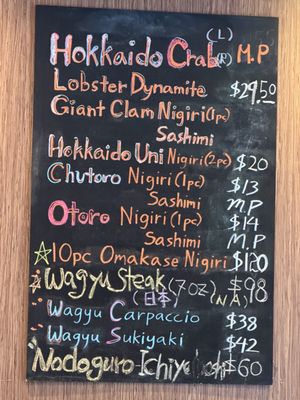 (L)
Hokkaido Crab(R) M.P
Lobster Dynamite $29.50
Giant Clam Nigiri(1pc)
Sashimi
Hokkaido Uni Nigiri(2pc) $20
Chutoro Nigiri(1pc) $13
Sashimi M.P
Otoro Nigiri(1pc) $14
Sashimi M.P
☆10pc Omakase Nigiri $120
☆Wagyu Steak(7oz) $98
(日本) (N/A)
Wagyu Carpaccio $38
Wagyu Sukiyaki $42
Nodoguro Ichiyaboshi $60